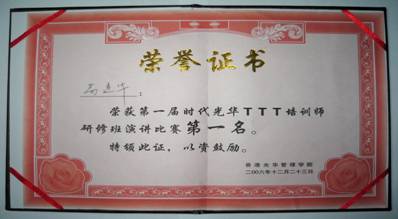 荣誉证书
荣获第一届时代光华TTT培训师
研修班演讲比赛第一名。
特颁此证，以资鼓励。
香港光华管理学院
二00六年十二月二十三日